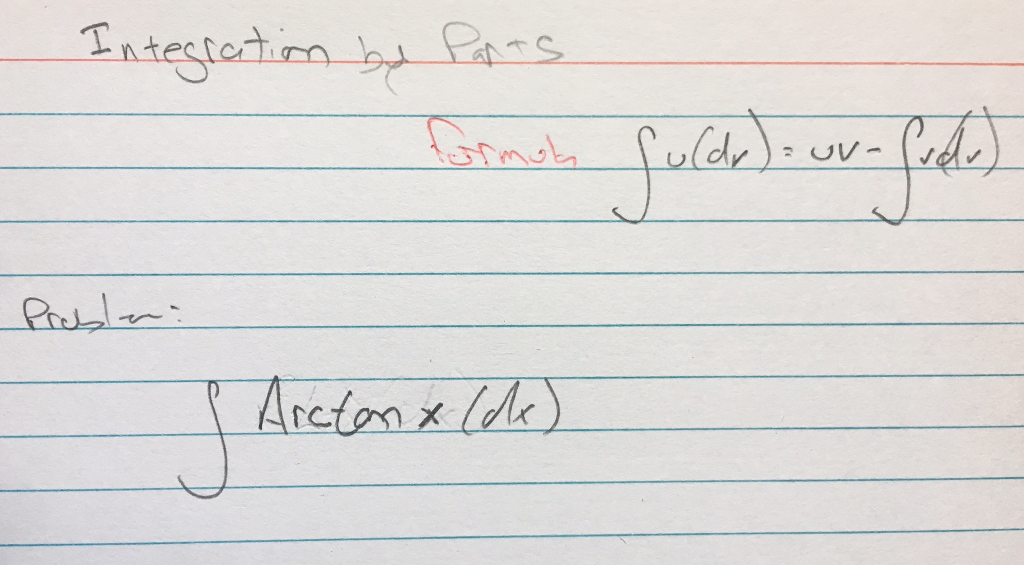 Integration by Parts
Formula ∫u(dv) = uv - ∫v(dv)
Problem:
∫ Arctan x (dx)